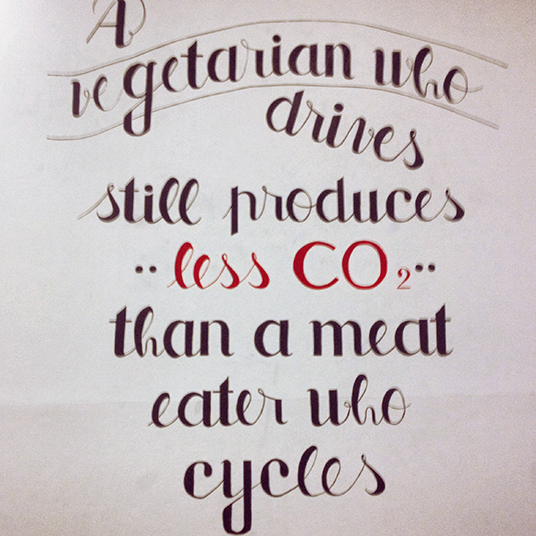 A
vegetarian who
drives
still produces
·· less CO₂ ··
than a meat
eater who
cycles